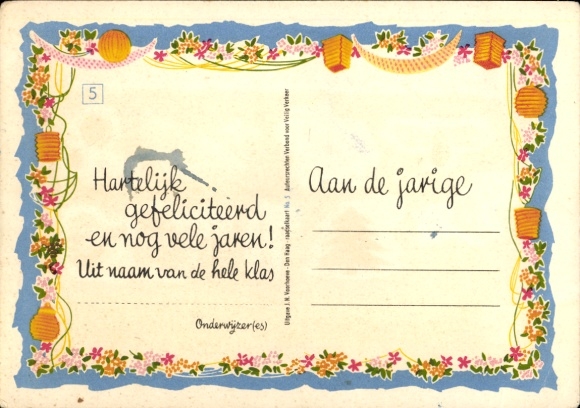 5
Hartelijk
gefeliciteerd
en nog vele jaren!
Uit naam van de hele klas
Onderwijzer(es)
Uitgave J. N. Voorhoeve - Den Haag - raapselkaart No. 5 Auteursrechten Verbond voor Veilig Verkeer
Aan de jarige